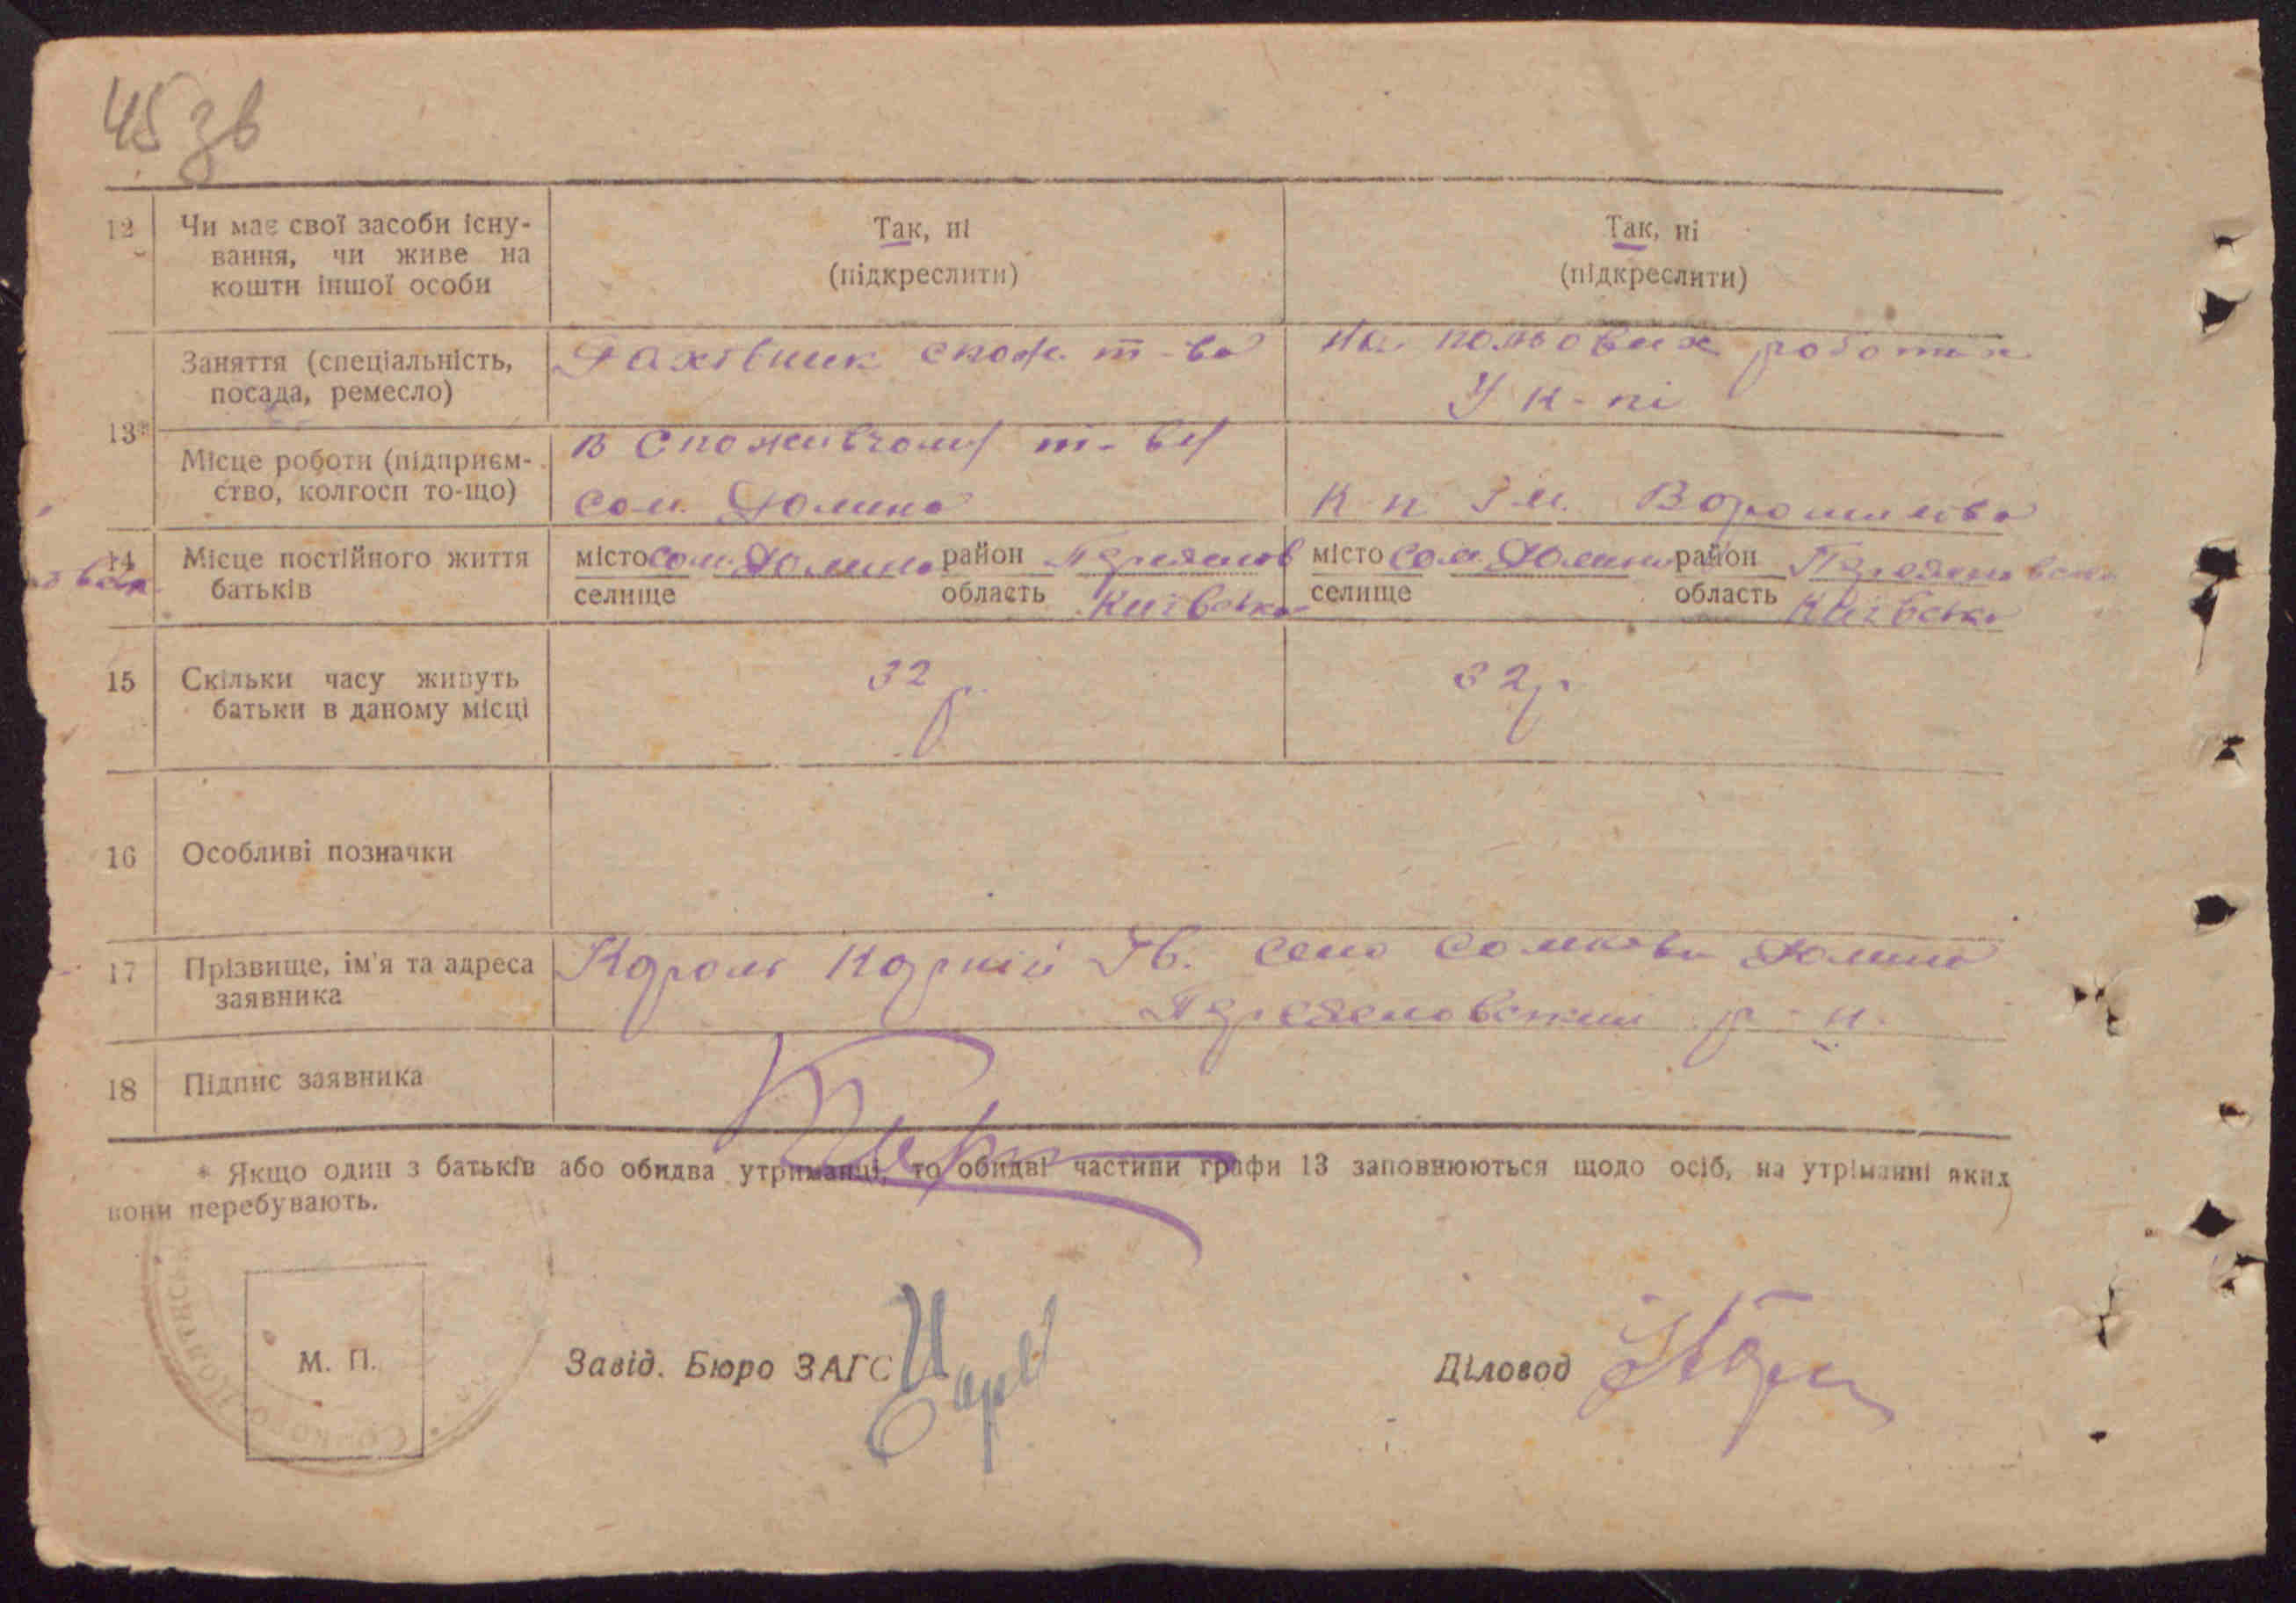 45 зв
12 Чи має свої засоби існу- Так, ні Так, ні
вання, чи живе на (підкреслити) (підкреслити)
кошти іншої особи
Заняття (спеціальність, Рахівник спож. т-ва На польових роботах
посада, ремесло) У к-пі
13*
Місце роботи (підприєм- в Споживчому т-ву
ство, колгосп то-що) Сом. Долина К-п Ім. Ворошилова
14 Місце постійного життя місто Сом. Долина район Переяслов місто Сом. Долина район Переяславськ
батьків селище область Київська селище область Київська
15 Скільки часу живуть 32 р. 32 р.
батьки в даному місці
16 Особливі позначки
17 Прізвище, ім'я та адреса Король Корній Ів. село Сомкова Долина
заявника Переясловский р-н.
18 Підпис заявника
* Якщо один з батьків або обидва утриманці, то обидві частини графи 13 заповнюються щодо осіб, на утріманні яких
вони перебувають.
М. П. Завід. Бюро ЗАГС Діловод